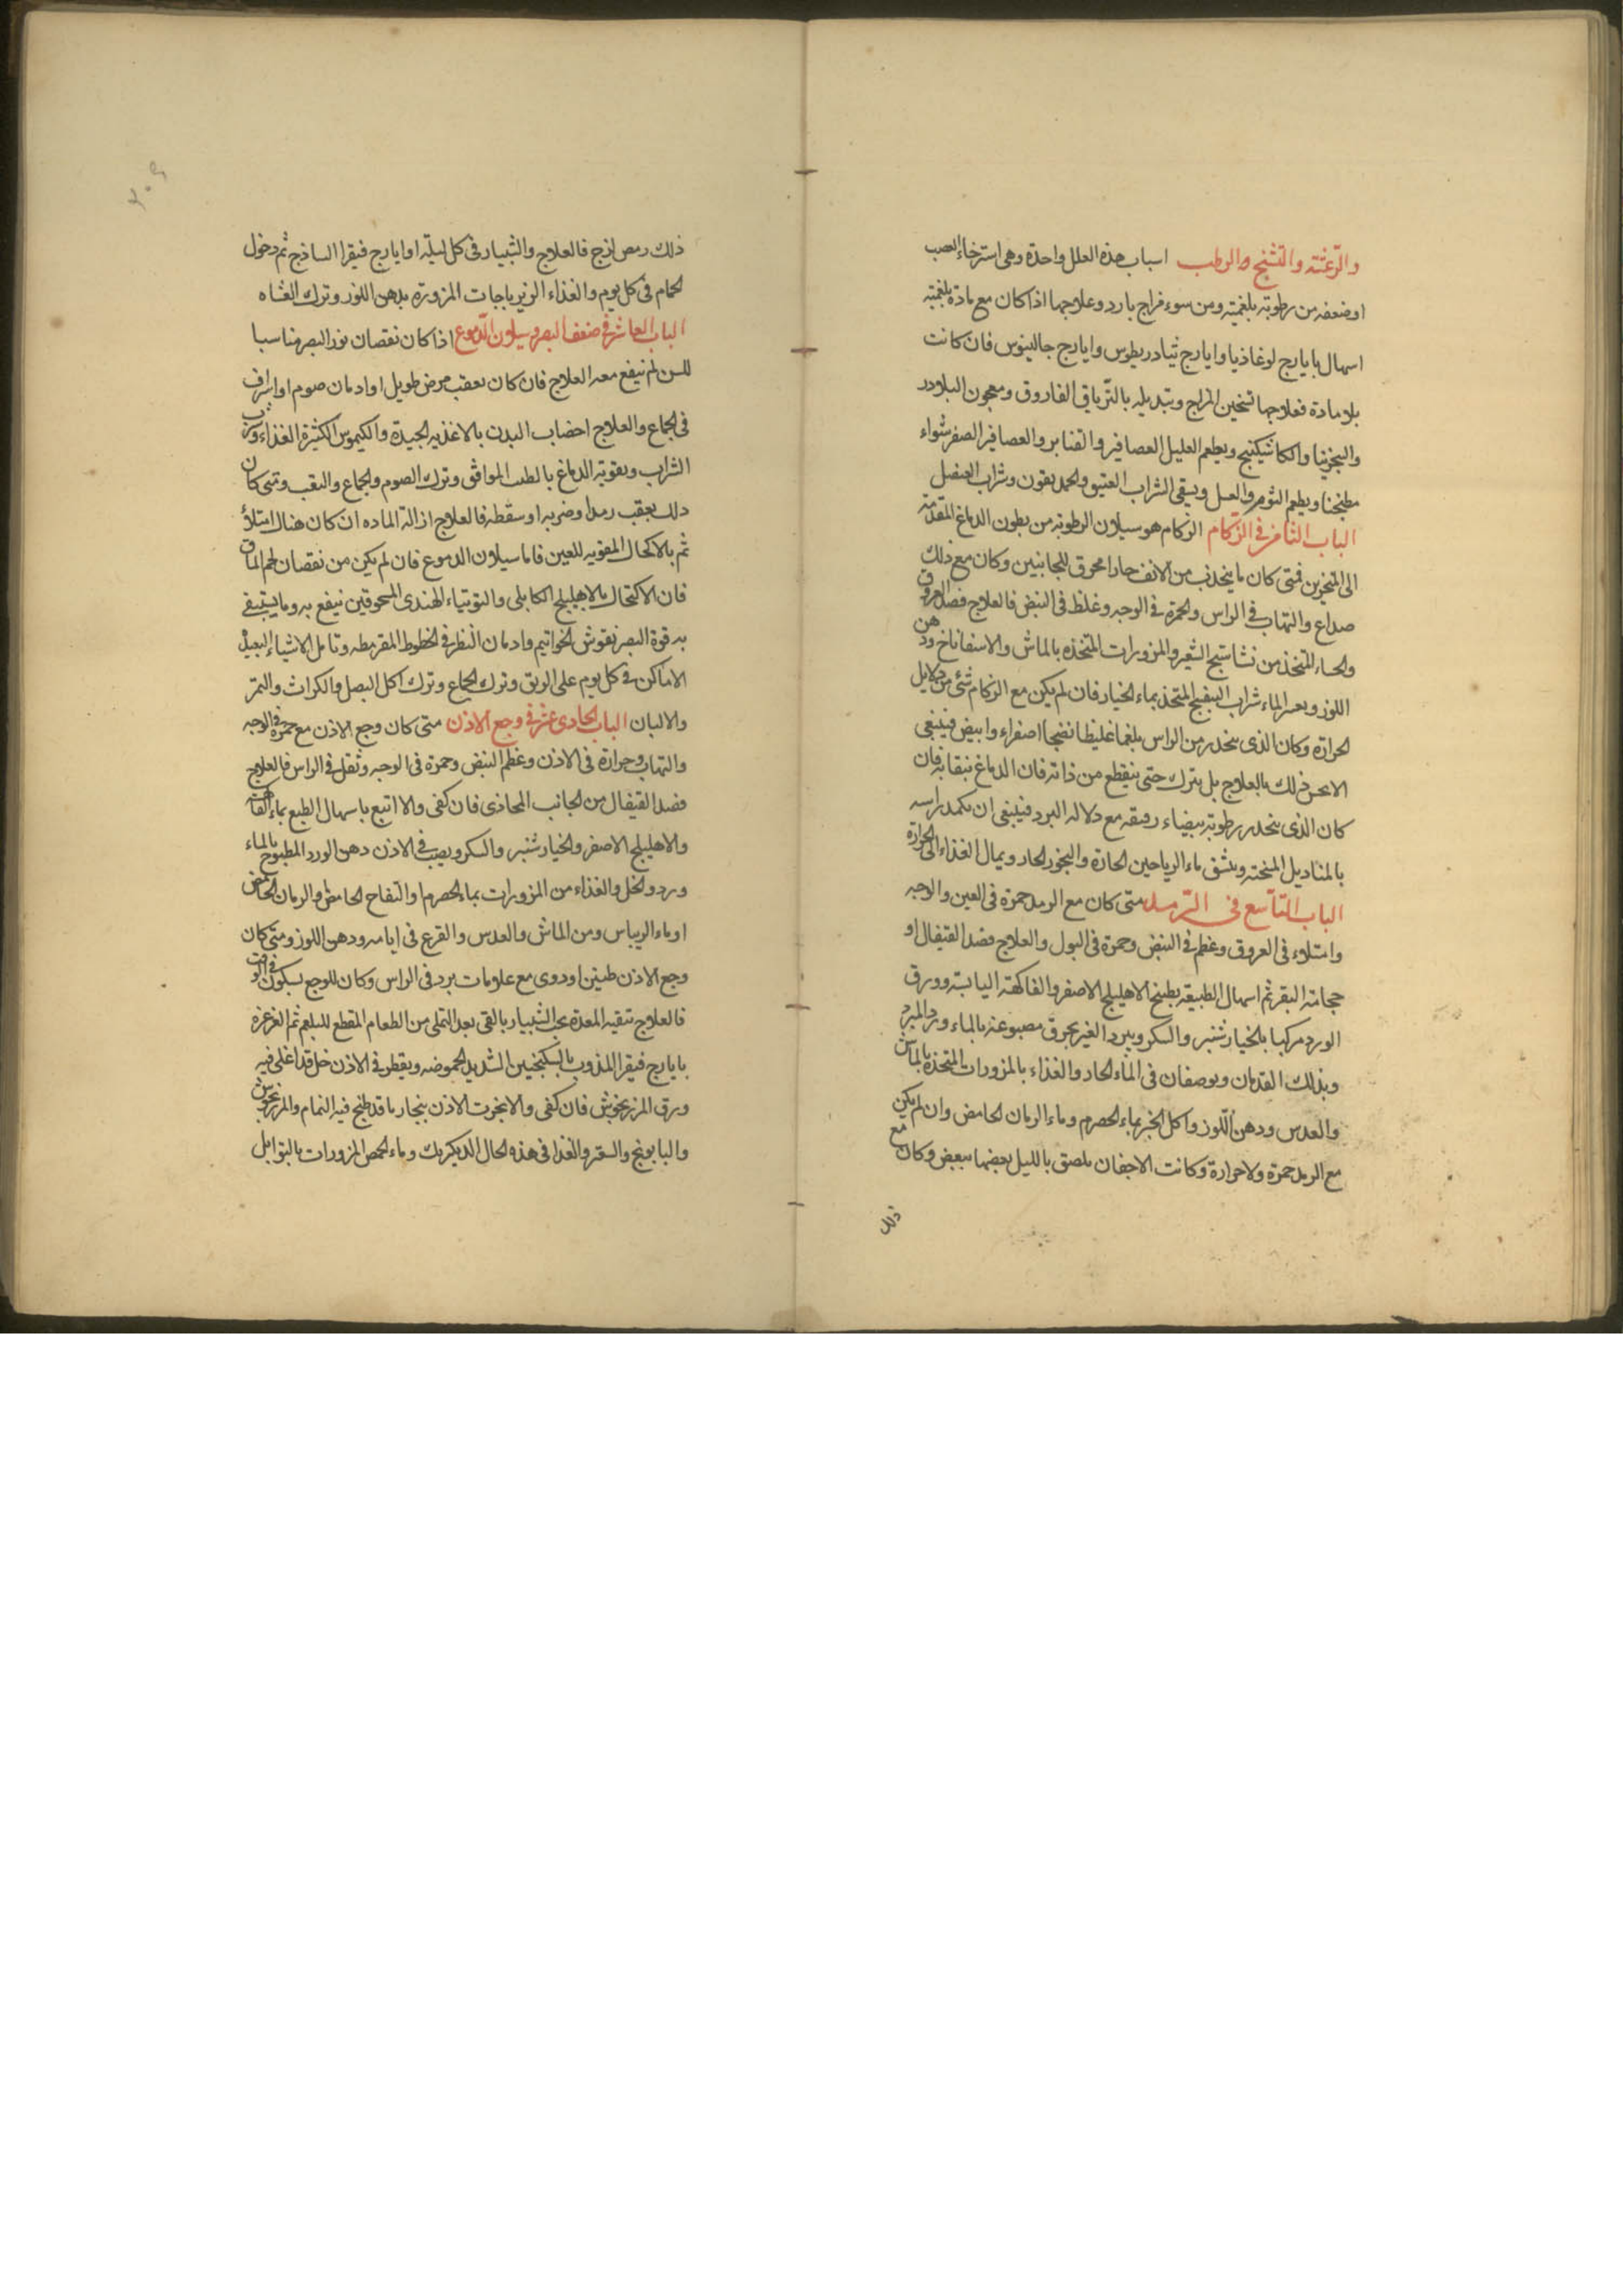 والرعشة والتشنج الرطب اسباب هذه العلل واحدة وهى استرخاء العصب
او ضعفه من رطوبة بلغمية ومن سوء مزاج بارد وعلاجها اذا كان مع مادة بلغمية
اسهال بايارج لوغاذيا وايارج تيادريطوس وايارج جالينوس فان كانت
بلا مادة فعلاجها تسخين المزاج وتبديله بالترياق الفاروق ومعجون البلادر
والسجزينا والكاسكبينج ويطعم العليل العصافير والقنابر والعصافير الصفر شواء
مطجنا ويطعم الثوم والعسل ويسقى الشراب العتيق والخمديقون وشراب العنصل
الباب الثامن فى الزكام الزكام هو سيلان الرطوبة من بطون الدماغ المقدمة
الى المنخرين فمتى كان ما ينجذب من الانف حارا محرق للجانبين وكان مع ذلك
صداع والتهاب فى الراس والحمرة فى الوجه وغلظ فى النبض فالعلاج فصد العروق
والحساء المتخذ من نشاستج الشعير والمزورات المتخذه بالماش والاسفاناخ ودهن
اللوز وبعد الماء شراب البنفسج المتخذ بماء الخيار فان لم يكن مع الزكام شئ من دلايل
الحرارة وكان الذى ينحدر من الراس بلغما غليظا نضجا اصفراء وابيض فينبغى
الا يحس ذلك بالعلاج بل يترك حتى ينقطع من ذاته فان الدماغ ينقا به فان
كان الذى ينحدر رطوبة بيضاء رقيقه مع دلاله البرد فينبغى ان يكمد راسه
بالمناديل المسخنه وينشق ماء الرياحين الحارة والبخور الحار ويمال الغذاء الى الحرارة
الباب التاسع فى الرمد متى كان مع الرمد حمرة فى العين والوجه
وامتلاء فى العروق وعظم فى النبض وحمرة فى البول والعلاج فصد القيفال او
حجامة النقرة ثم اسهال الطبيعة بطبيخ الاهليلج الاصفر والفاكهة اليابسة وورق
الورد مركبا بالخيار شنبر والسكر ويبرد العين بخرق مصبوغه بالماء ورد المبرد
وبذلك القدمان ويوضعان فى الماء الحار والغذاء بالمزورات المتخذة بالماش
والعدس ودهن اللوز واكل الخبز بماء الحصرم وماء الرمان الحامض وان لم يكن
مع الرمد حمرة ولا حرارة وكانت الاجفان يلصق بالليل بعضها ببعض وكان مع
ذلك
ذلك رمص لزج فالعلاج والشبيار فى كل ليلة او ايارج فيقرا الساذج ثم دخول
الحمام فى كل يوم والغذاء الزيرباجات المزورة بدهن اللوز وترك العشاه
الباب العاشر فى ضعف البصر وسيلان الدموع اذا كان نقصان نور البصر مناسبا
للسن لم ينفع معه العلاج فان كان بعقب مرض طويل او ادمان صوم او اسراف
فى الجماع والعلاج اخصاب البدن بالاغذيه الجيدة والكيموس الكثيرة الغذاء وشرب
الشراب وتقوية الدماغ بالطيب الموافق وترك الصوم والجماع والتعب ومتى كان
ذلك بعقب رمد او ضربه او سقطه فالعلاج ازالة الماده ان كان هناك امتلأ
ثم بالاكحال المقويه للعين فاما سيلان الدموع فان لم يكن من نقصان لحم الماق
فان الاكتحال بالاهليلج الكابلى والتوتياء الهندى المسحوقين ينفع به وما يستبقى
به قوة البصر نقوش الخواتيم وادمان النظر فى الخطوط المقرمطه وتامل الاشياء البعيدة
الاماكن فى كل يوم على الريق وترك الجماع وترك اكل البصل والكراث والتمر
والالبان الباب الحادى عشر فى وجع الاذن متى كان وجع الاذن مع حمرة فى الوجه
والتهاب وحرارة فى الاذن وعظم النبض وحمرة فى الوجه وثقل فى الراس فالعلاج
فصد القيفال من الجانب المحاذى فان كفى والا اتبع باسهال الطبع بماء الفاكهة
والاهليلج الاصفر والخيار شنبر والسكر ويصب فى الاذن دهن الورد المطبوخ بالماء
ورد والخل والغذاء من المزورات بماء الحصرم او التفاح الحامض والرمان الحامض
او ماء الريباس ومن الماش والعدس والقرع فى ايامه ودهن اللوز ومتى كان
وجع الاذن طنين او دوى مع علامات برد فى الراس وكان للوجع سكون فى اوقات
فالعلاج تنقيه المعدة بحب الشبيار بالقى بعد التملى من الطعام المقطع للبلغم ثم الغرغرة
بايارج فيقرا المذوب بالسكنجبين الشديد الحموضه ويقطر فى الاذن خل قد اغلى فيه
ورق المرزنجوش فان كفى والا بخرت الاذن ببخار ما قد طبخ فيه النمام والمرزنجوش
والبابونج والسعتر والغذا فى هذه الحال الديكبريك وماء الحمص المزورات بالتوابل